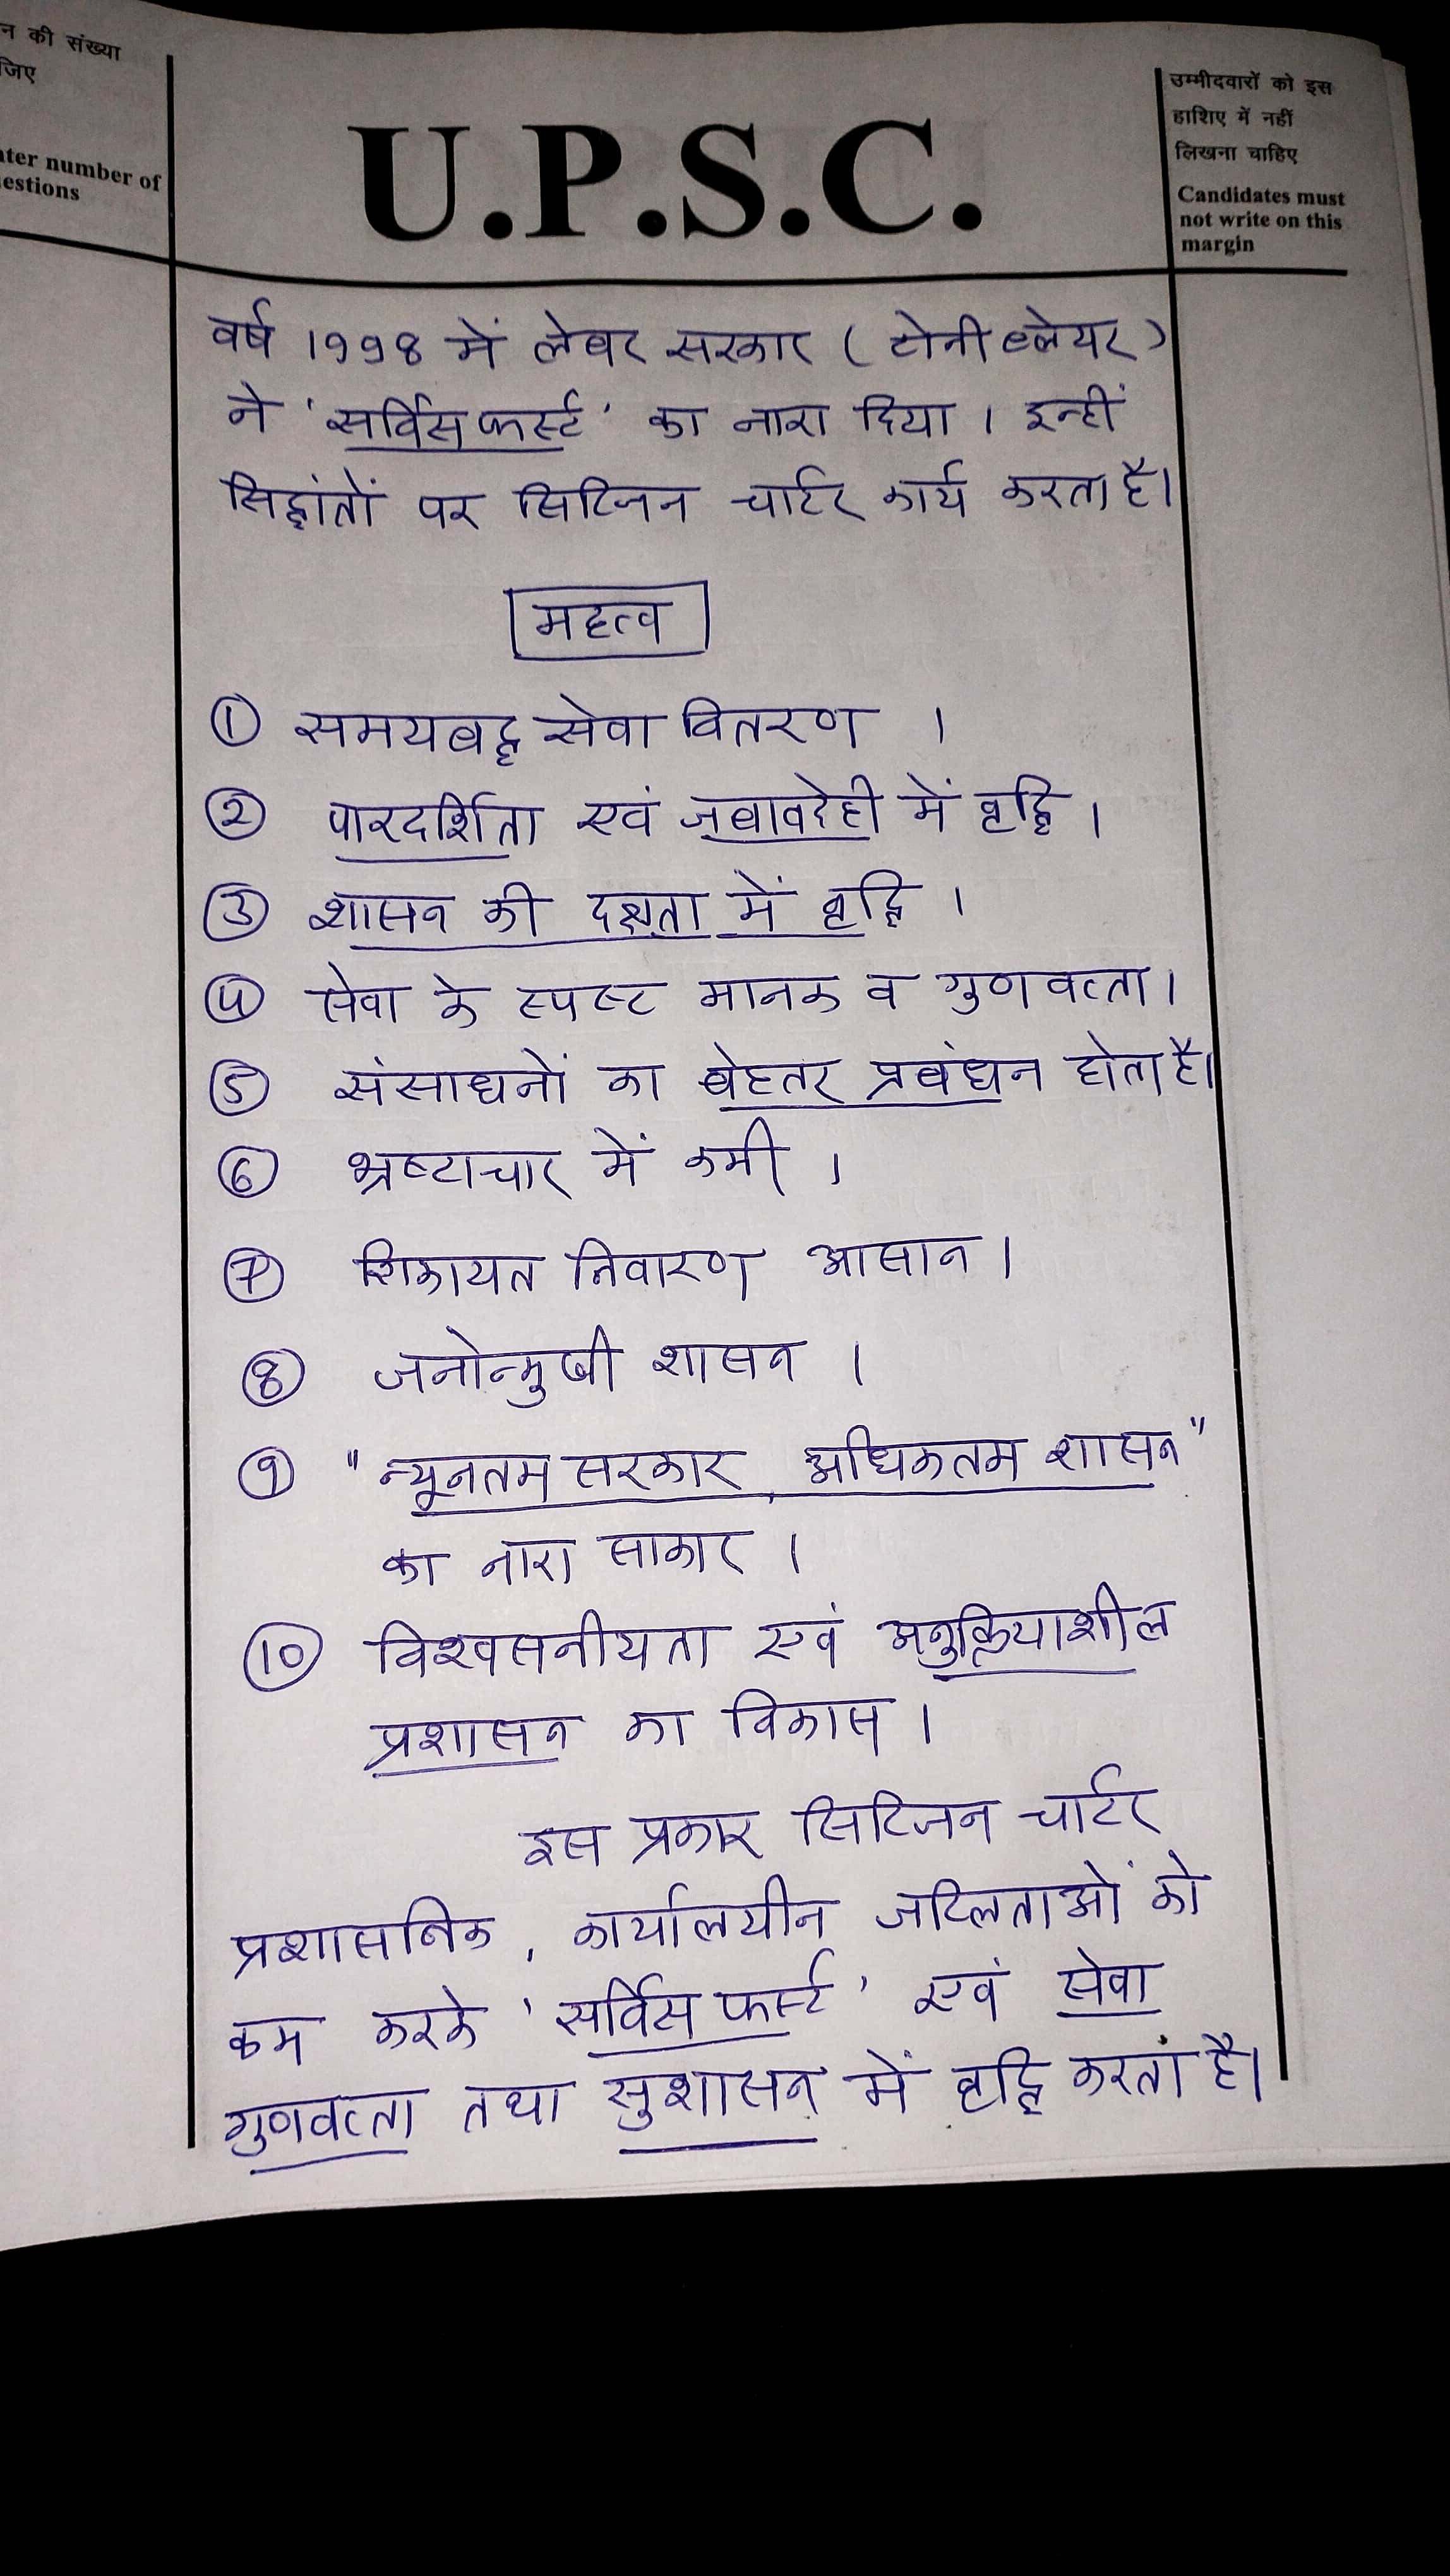 न की संख्या
जिए
ater number of
estions
U.P.S.C.
उम्मीदवारों को इस
हाशिए में नहीं
लिखना चाहिए
Candidates must
not write on this
margin
वर्ष 1998 में लेबर सरकार ( टोनी ब्लेयर )
ने 'सर्विस फर्स्ट' का नारा दिया । इन्हीं
सिद्धांतों पर सिटिजन चार्टर कार्य करता है।
महत्व
① समयबद्ध सेवा वितरण ।
② पारदर्शिता एवं जबावदेही में वृद्धि ।
③ शासन की दक्षता में वृद्धि ।
④ सेवा के स्पस्ट मानक व गुणवत्ता ।
⑤ संसाधनों का बेहतर प्रबंधन होता है।
⑥ भ्रष्टाचार में कमी ।
⑦ शिकायत निवारण आसान ।
⑧ जनोन्मुखी शासन ।
⑨ "न्यूनतम सरकार, अधिकतम शासन"
का नारा साकार ।
⑩ विश्वसनीयता एवं अनुक्रियाशील
प्रशासन का विकास ।
इस प्रकार सिटिजन चार्टर
प्रशासनिक, कार्यालयीन जटिलताओं को
कम करके 'सर्विस फर्स्ट' एवं सेवा
गुणवत्ता तथा सुशासन में वृद्धि करता है।